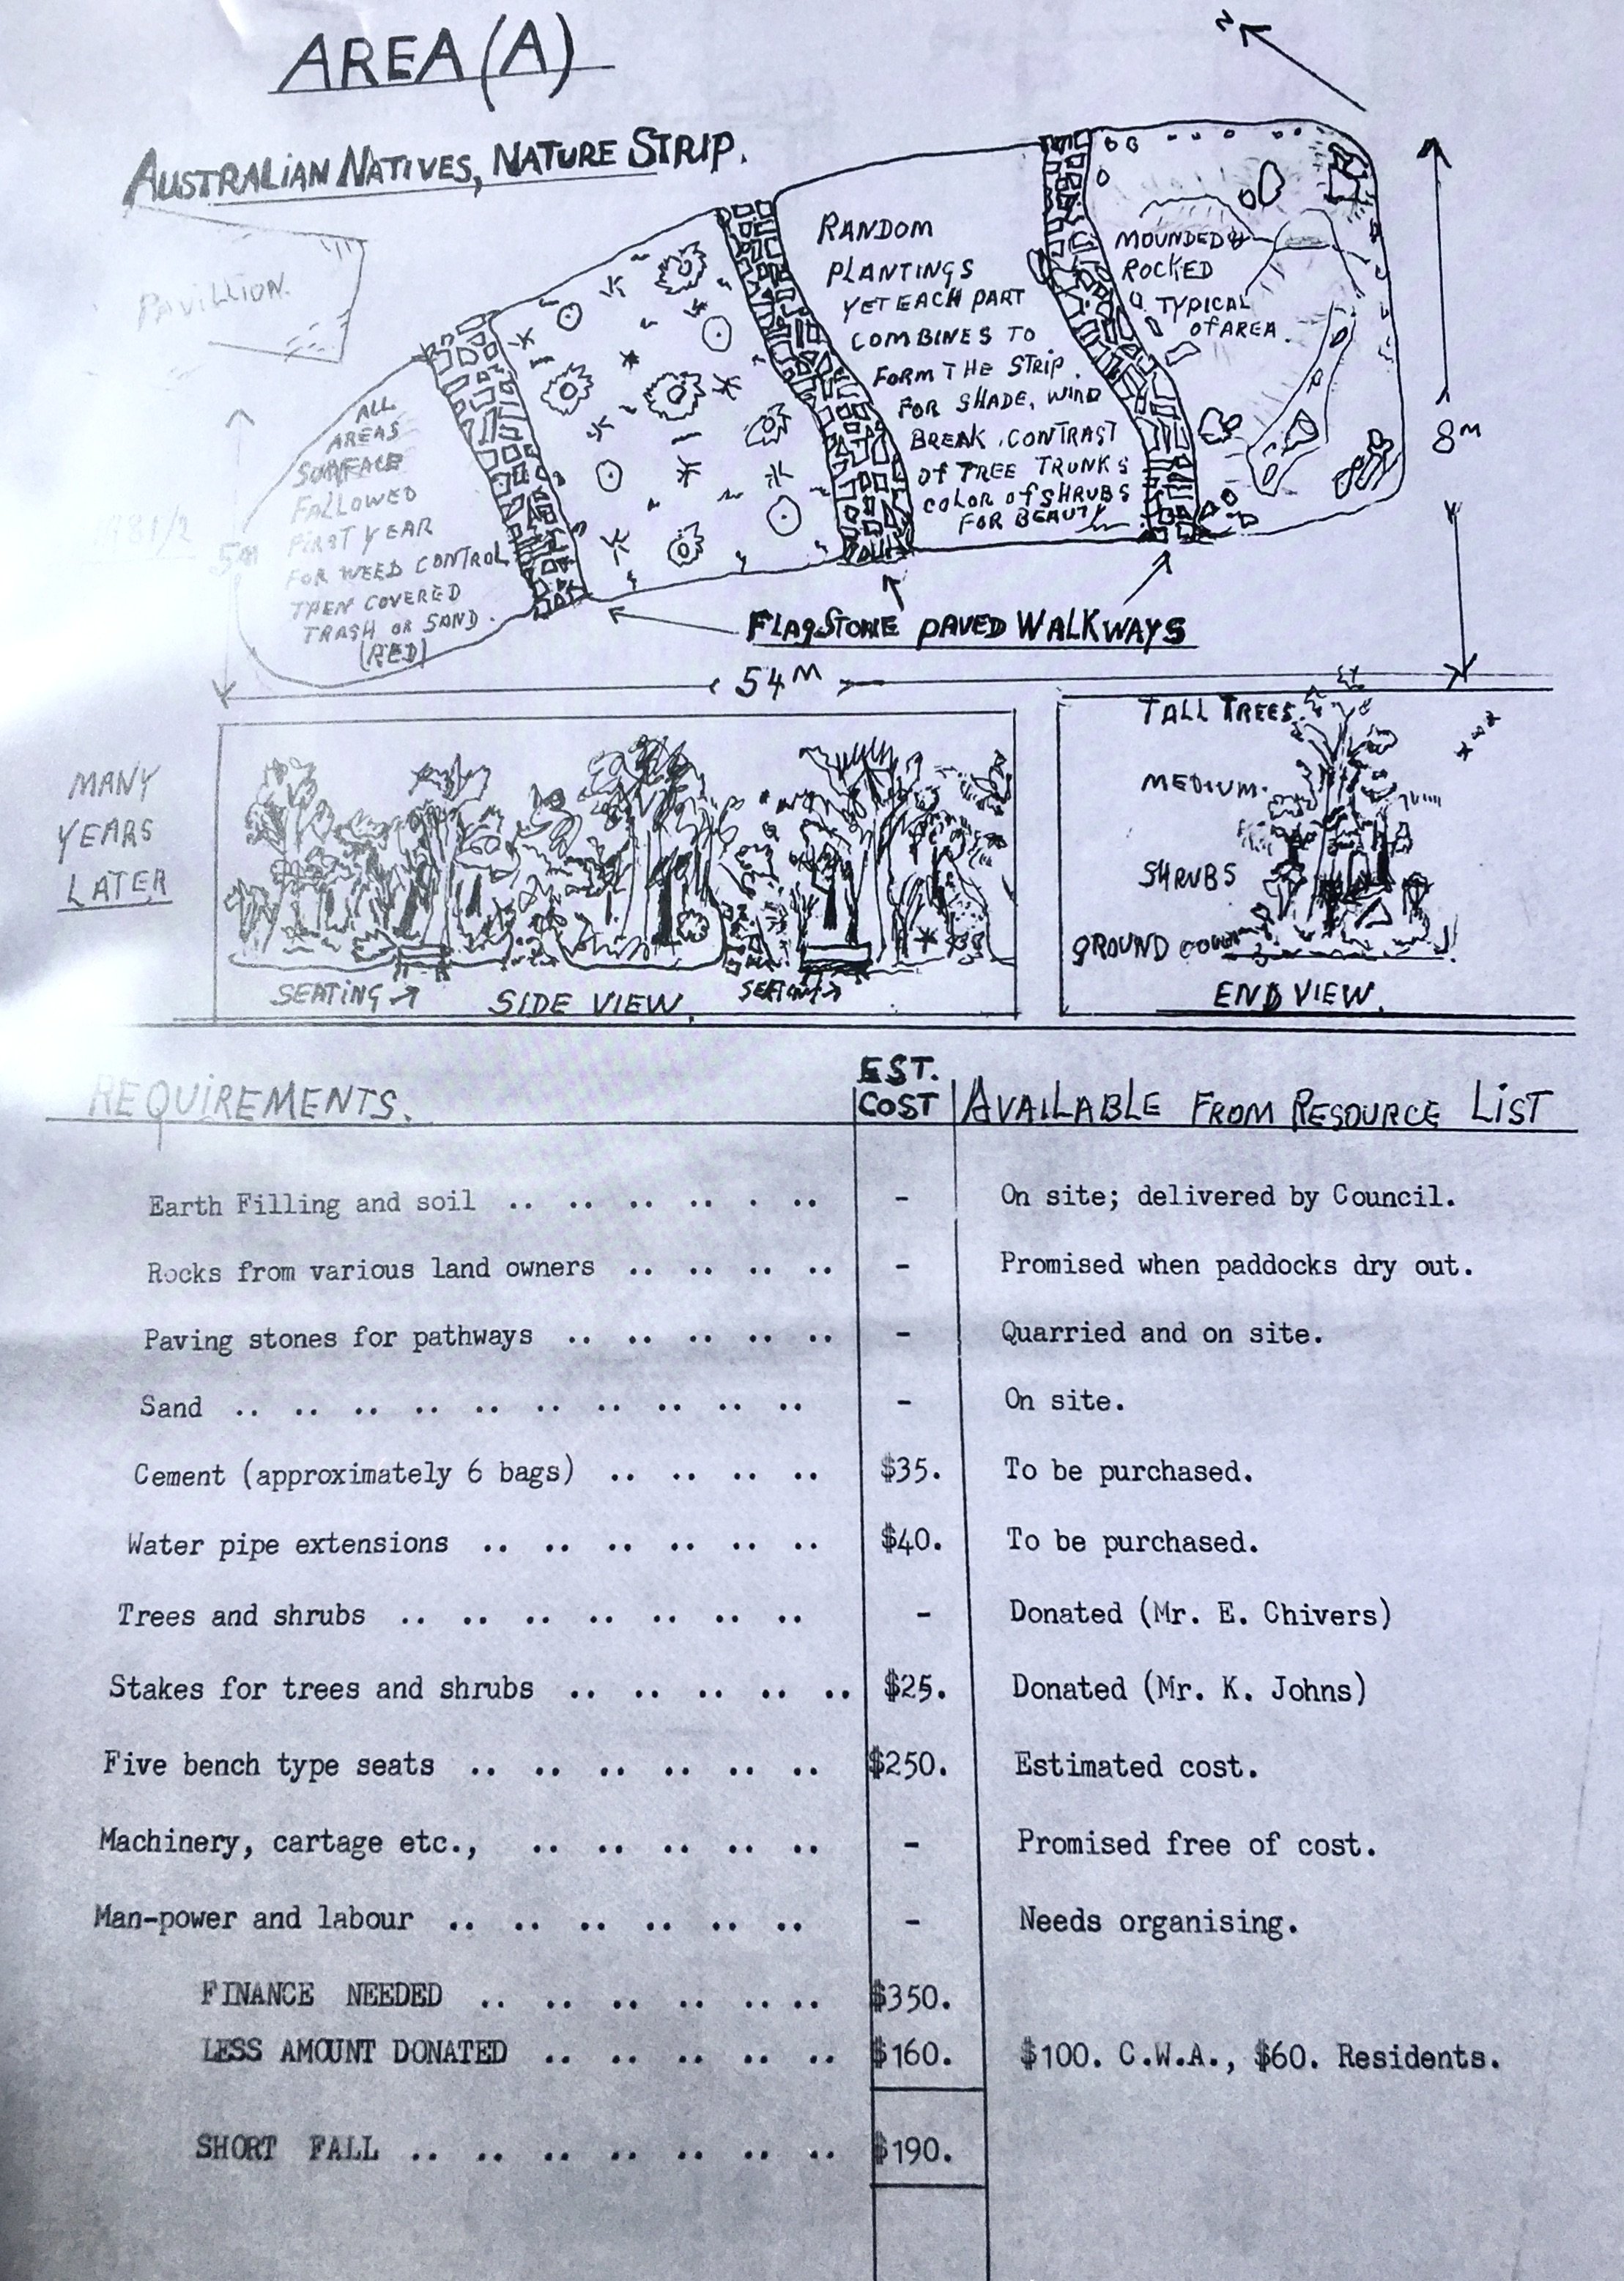 N
AREA (A)
AUSTRALIAN NATIVES, NATURE STRIP.
PAVILLION.
RANDOM
PLANTINGS
YET EACH PART
COMBINES TO
FORM THE STRIP.
FOR SHADE, WIND
BREAK, CONTRAST
OF TREE TRUNKS
COLOR OF SHRUBS
FOR BEAUTY
MOUNDED &
ROCKED
TYPICAL
OF AREA.
ALL
AREAS
SURFACE
FALLOWED
FIRST YEAR
FOR WEED CONTROL
THEN COVERED
TRASH OR SAND.
(RED)
1981/2
5M
8M
FLAGSTONE PAVED WALKWAYS
54M
MANY
YEARS
LATER
SEATING →
SIDE VIEW.
SEATING →
TALL TREES.
MEDIUM.
SHRUBS
GROUND COVER
END VIEW.
REQUIREMENTS. EST. COST AVAILABLE FROM RESOURCE LIST
Earth Filling and soil .. .. .. .. . .. - On site; delivered by Council.
Rocks from various land owners .. .. .. .. - Promised when paddocks dry out.
Paving stones for pathways .. .. .. .. .. - Quarried and on site.
Sand .. .. .. .. .. .. .. .. .. .. - On site.
Cement (approximately 6 bags) .. .. .. .. $35. To be purchased.
Water pipe extensions .. .. .. .. .. .. $40. To be purchased.
Trees and shrubs .. .. .. .. .. .. .. - Donated (Mr. E. Chivers)
Stakes for trees and shrubs .. .. .. .. .. $25. Donated (Mr. K. Johns)
Five bench type seats .. .. .. .. .. .. $250. Estimated cost.
Machinery, cartage etc., .. .. .. .. .. - Promised free of cost.
Man-power and labour .. .. .. .. .. .. - Needs organising.
FINANCE NEEDED .. .. .. .. .. .. $350.
LESS AMOUNT DONATED .. .. .. .. .. $160. $100. C.W.A., $60. Residents.
SHORT FALL .. .. .. .. .. .. .. $190.